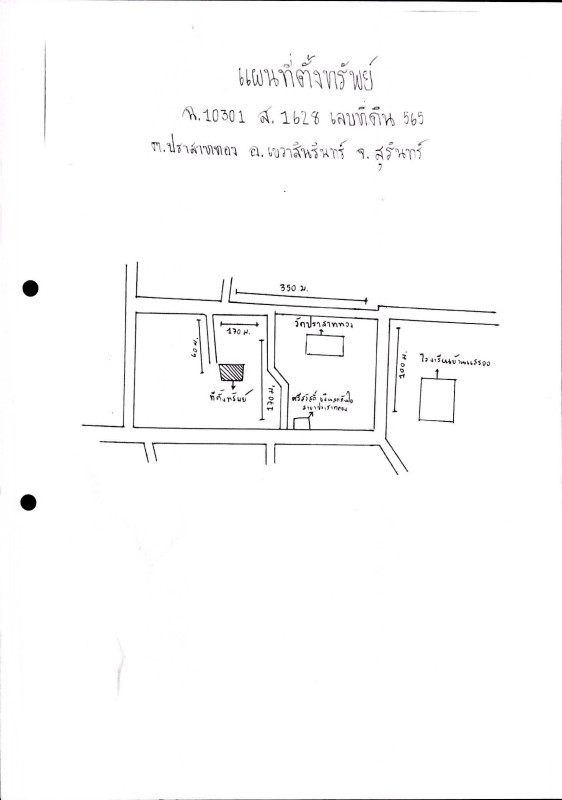 แผนที่ตั้งทรัพย์
ฉ.10301 ส.1628 เลขที่ดิน 565
ต.ปราสาททอง อ.เขวาสินรินทร์ จ.สุรินทร์
350 ม.
170 ม.
วัดปราสาททอง
60 ม.
100 ม.
โรงเรียนบ้านแสรออ
170 ม.
ที่ตั้งทรัพย์
ศรีสวัสดิ์
สาขาปราสาททอง